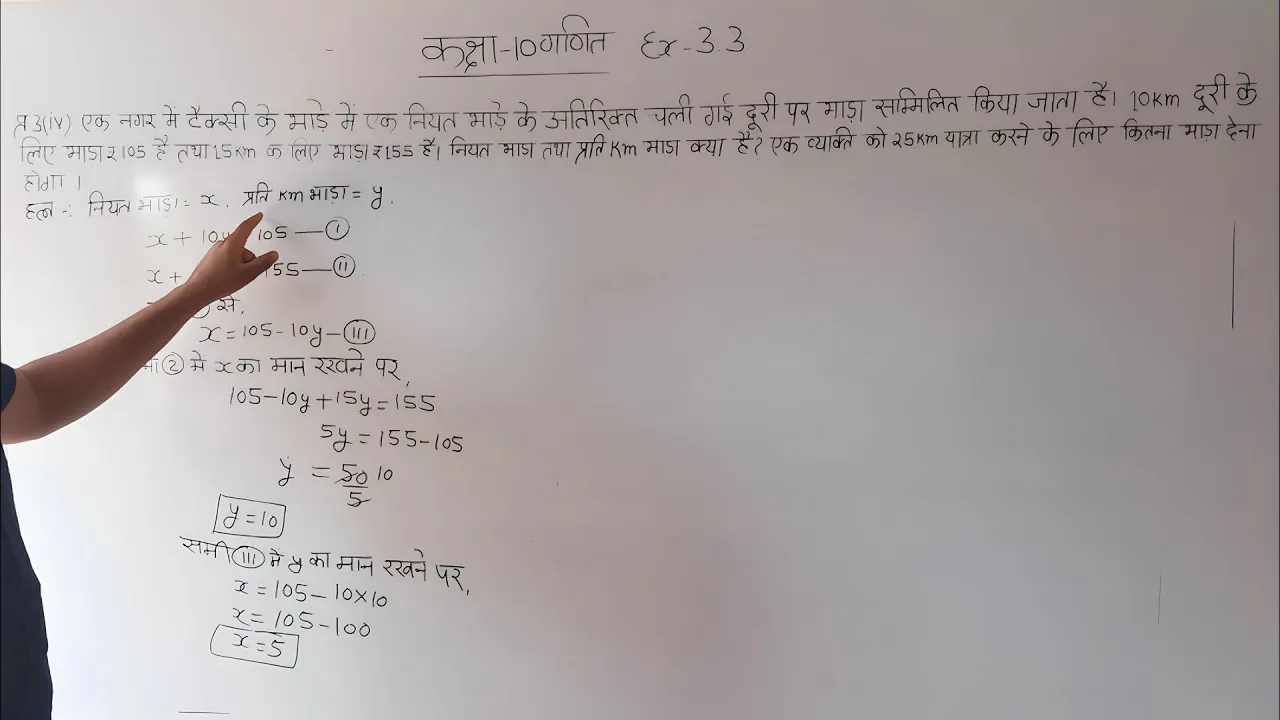 कक्षा-10 गणित Ex-3.3
प्र3(iv) एक नगर में टैक्सी के भाड़े में एक नियत भाड़े के अतिरिक्त चली गई दूरी पर भाड़ा सम्मिलित किया जाता है। 10Km दूरी के
लिए भाड़ा ₹105 है तथा 15Km के लिए भाड़ा ₹155 है। नियत भाडा तथा प्रति Km भाडा क्या है? एक व्यक्ति को 25Km यात्रा करने के लिए कितना भाड़ा देना
होगा ।
हल -: नियत भाड़ा = x, प्रति Km भाड़ा = y.
x + 10y 105 — I
x + 155 — II
से,
x = 105 - 10y — III
② मे x का मान रखने पर,
105 - 10y + 15y = 155
5y = 155 - 105
y = 50/5 10
y = 10
समी III मे y का मान रखने पर,
x = 105 - 10×10
x = 105 - 100
x = 5